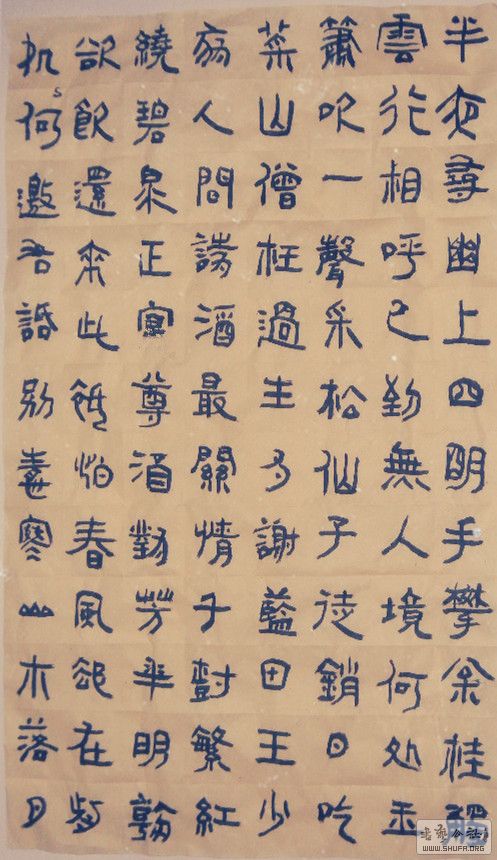 半夜尋幽上四明手攀余桂
雲行相呼已到無人境何处玉
簫吹一聲采松仙子徒銷日吃
菜山僧枉過生多謝藍田王少
府人間詩酒最關情千樹繁紅
繞碧泉正宜尊酒對芳年明朝
欲飲還來此秖怕春風卻在前
何邀君話別寒山木落月
書藝公社
WWW.SHUFA.ORG